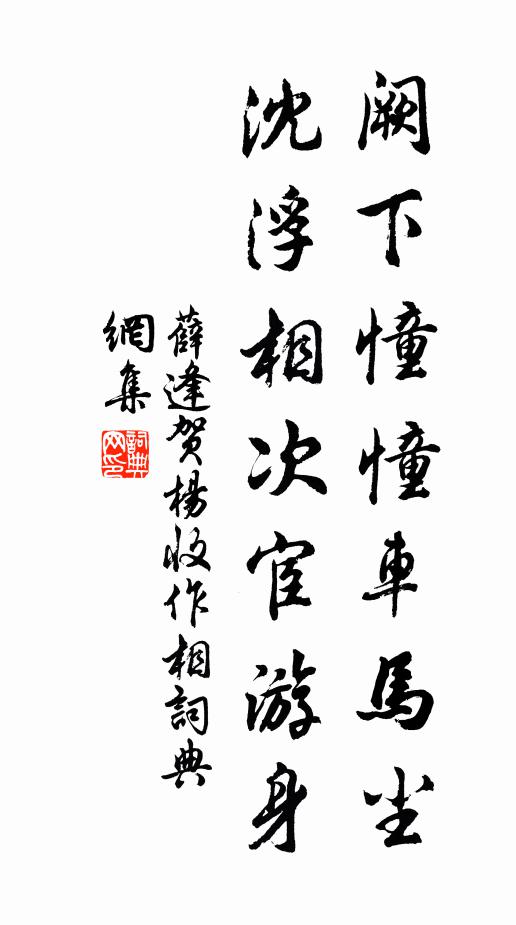 闕下憧憧車馬尘
沈浮相次宦游身
薛逢賀楊收作相詞典
網集
詞典网印